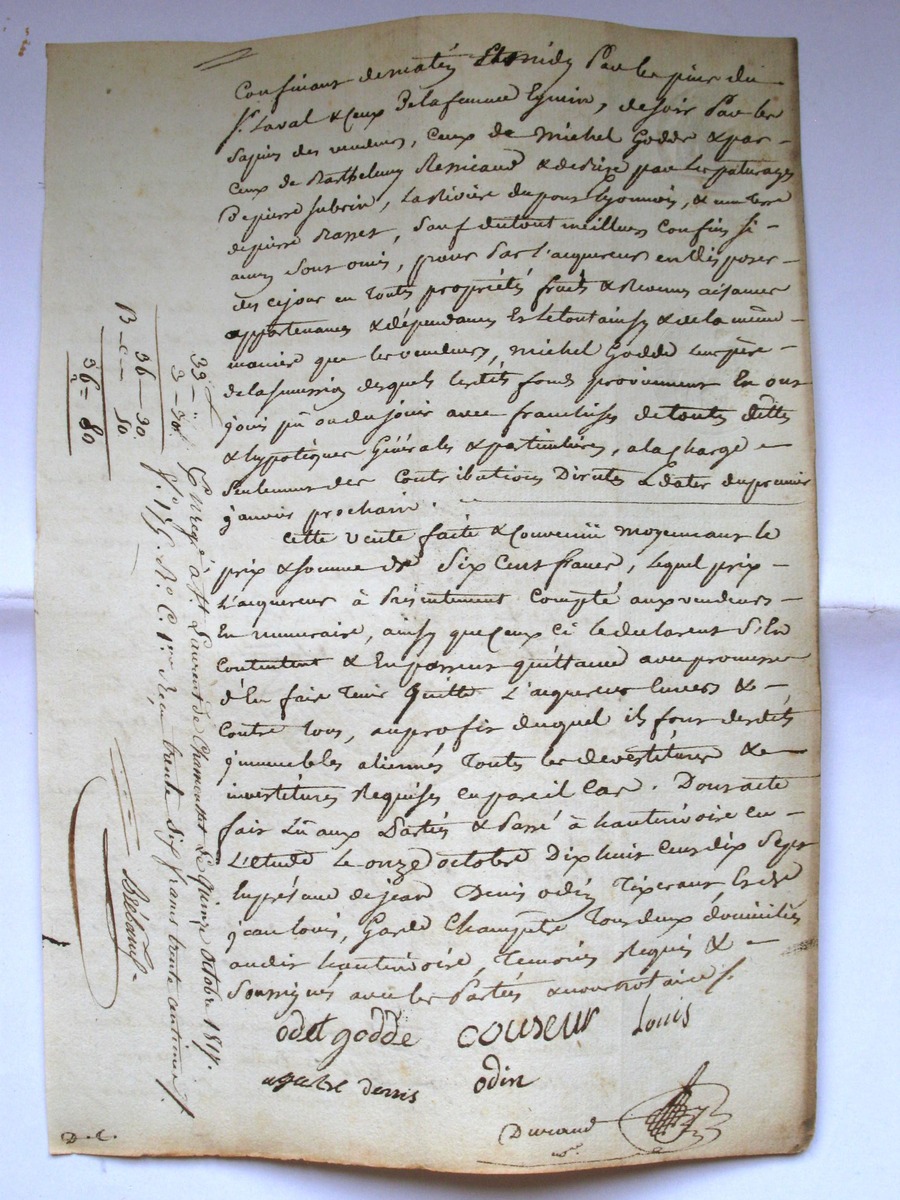 Confinant de matin & midy par les pins du
Sr. Laval & ceux de la femme Eymin, de soir par les
sapins des vendeurs, ceux de Michel Godde & par -
ceux de Barthelemy & de bize par les paturages
de pierre Subrin, la Rivière du pont Lyonnois, & une terre
de pierre, Sauf du tout meilleurs confins si -
aucuns sont omis, pour par l'acquereur en disposer -
des ce jour en toute propriétés fruits & Revenus aisances
appartenances & dépendances Et le tout ainsy & de la même -
manière que les vendeurs, Michel Godde leur père -
de la succession desquels lesdits fonds proviennent En ont
joui pû ou du jouir avec franchises de toutes dettes
& hypotèques Générales & particulières, a la charge -
seulement des Contributions Directes à dater du premier
janvier prochain.
Cette vente faite & convenüe moyennant le
prix & somme de Six Cent francs, lequel prix -
l'acquereur à présentement Compté aux vendeurs -
En numeraire, ainsy que ceux ci le declarent S'En
contentent & En passent quittance avec promesse
d'En faire tenir Quitte l'acquereur Envers & -
contre tous, au profit duquel ils font desdits
jmmeubles alienés toutes les devestitures & -
investitures Requises en pareil Cas. Dont acte
fait Lû aux Parties & Passé à hauterivoire En -
L'étude Le onze octobre Dix huit Cent dix Sept
En présence de jean Denis odin Tixerant, Et de
jean Louis, Garde Champêtre tous deux domiciliés
audit hauterivoire, Temoins Requis & -
soussignés avec les Parties & nous notaire /.
odet godde couseur Louis
denis odin
Durand
33 = "
3 - 30
36 - 30
- 50
36 = 80
Enregé à St. Laurent de Chamousset Le quinze octobre 1817.
f.o 175. R.o C. 1ere Reçu trente Six francs trente centimes /.
D.C.